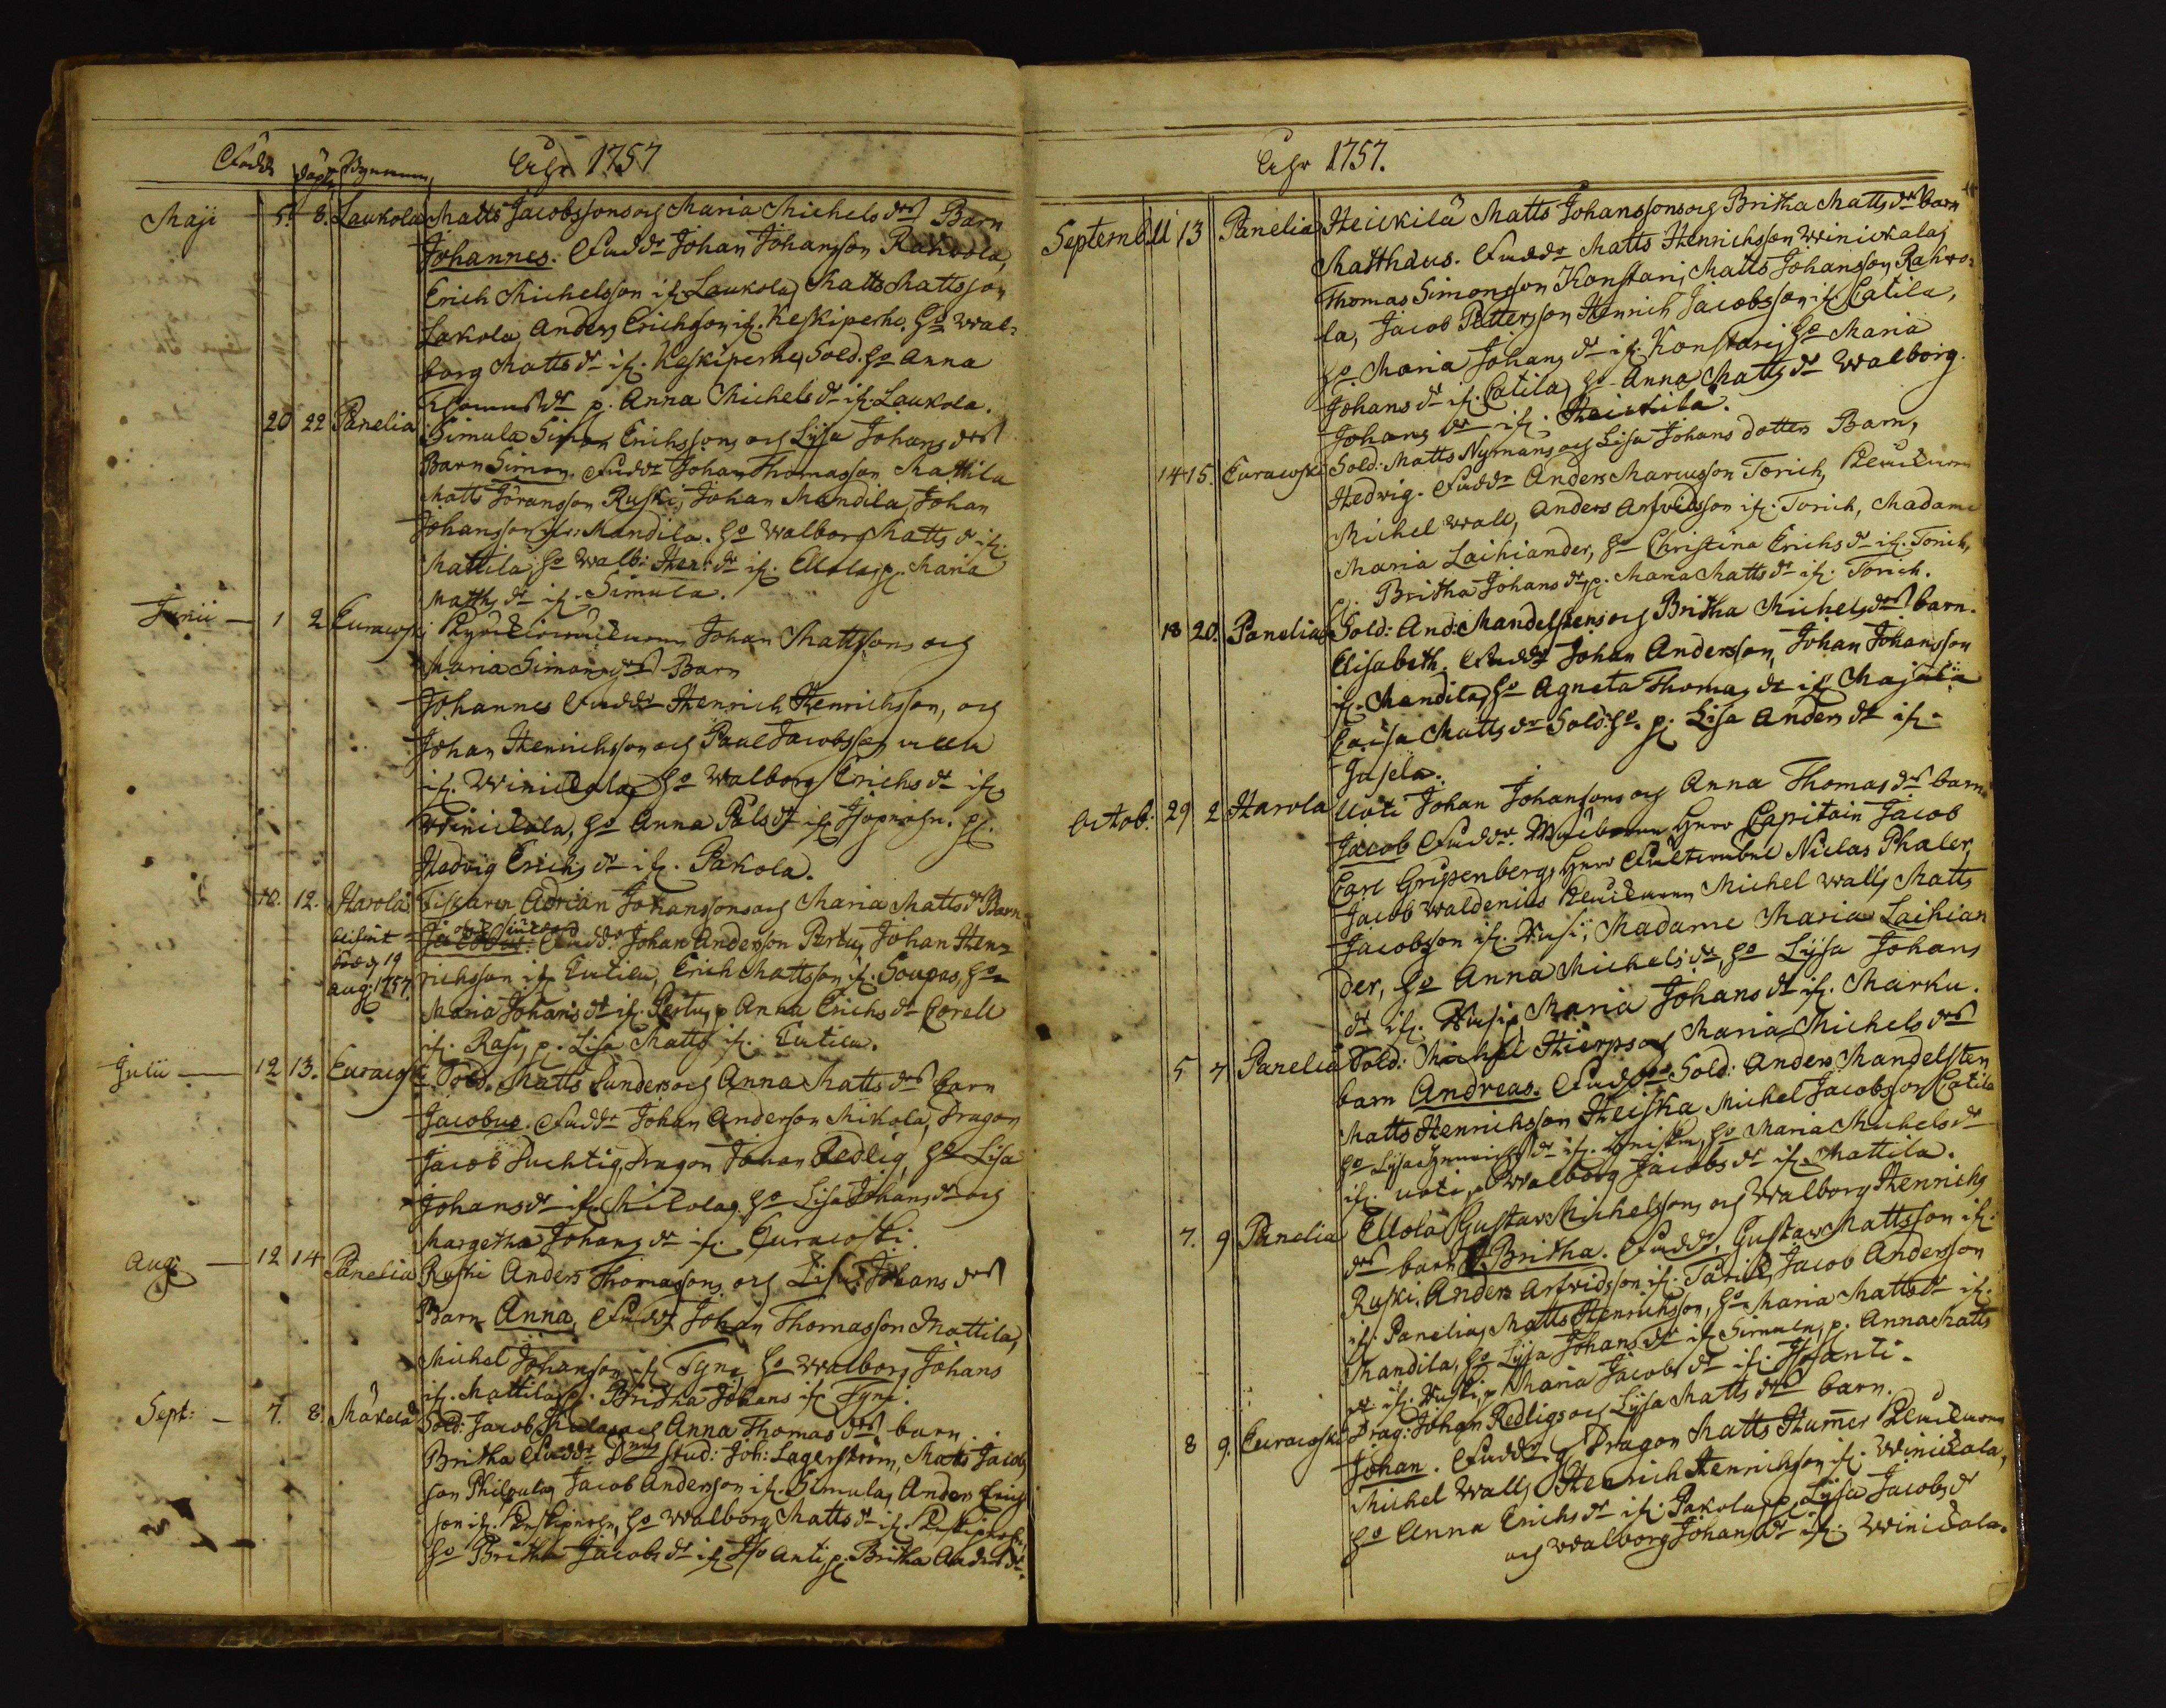 Födde döpte Byarnam, Åhr 1757
Maji 5. 8. Laukola Matts Jacobssons och Maria Michels drs Barn
Johannes. Faddr Johan Johansson Rahvola,
Erich Michelsson if. Laukola, Matts Mattsson
Lakola, Anders Erichson if. Keskiperhe. ho Wal-
borg Matts dr if. Keskiperhe, Sold. ho Anna
Thomæ dr p. Anna Michels dr if. Laukola.
20 22 Panelia Simula Simon Erichssons och Lisa Johans drs
Barn Simon. Faddr Johan Thomasson Mattila
Matts Jöransson Ruski, Johan Mandila, Johan
Johansson if. Mandila. ho Walborg Matts dr if.
Mattila, ho Walb: Hen: dr if. Ellola, p. Maria
Matts dr if. Simula.
Junii 1 2 Euraåski Johan Mattsons och
Maria Simons drs Barn
Johannes Faddr Henrich Henrichsson, och
Johan Henrichsson och Paul Jacobsson alla
if. Winickala, ho Walborg Erichs dr if.
Winickala, ho Anna Påls dr if. p.
Hedvig Erichs dr if. Pakola.
10. 12. Harola Fiskaren Adrian Johanssons och Maria Matts drs Barn
Jacobus. Faddr Johan Anderson Pertu, Johan Hen-
död d. 19
Aug. 1757.
richsson if. Eutila, Erich Mattsson if. Soupas, ho
Maria Johans dr if. Pertu, p Anna Erichs dr Corell
if. Rasi, p. Lisa Matts if. Eutila.
Julii 12 13. Euraåski Sold. Matts Sunders och Anna Matts drs barn
Jacobus. Faddr Johan Anderson Mikola, Dragon
Jacob Duchtig, Dragon Johan Redlig, ho Lisa
Johans dr if. Mikola, ho Lisa Johans dr och
Margetha Johans dr if. Euraåski.
Aug: 12 14 Panelia Ruski Anders Thomassons och Lisa Johans drs
Barn Anna, Faddr Johan Thomasson Mattila,
Michel Johanson if. Tyni, ho Walborg Johans
if. Mattila, p. Britha Johans if. Tyni.
Sept: 7. 8. Mäkelä Sold: Jacob och Anna Thomas drs barn
Britha Faddr Dnus Stud: Joh: Lagerström, Matts Jacobs
son Philpula, Jacob Anderson if. Simula, Anders Erich
son if. Keskiperhe, ho Walborg Matts dr if. Keskiperhe,
ho Britha Jacobs dr if. Iso Anti, p. Britha Anders dr.
Åhr 1757.
Septemb. 11 13 Panelia Heickilä Matts Johanssons och Britha Matts dr barn
Matthæus. Faddr Matts Henrichsson Winickala,
Thomas Simonson Konstari, Matts Johansson Rahvo-
la, Jacob Pettersson Henrich Jacobsson if. Catila,
ho Maria Johans dr if. Konstari, ho Maria
Johans dr if. Catila, ho Anna Matts dr Walborg
Johans dr if. Heickilä.
14 15. Euraåski Sold: Matts Nymans och Lisa Johans dotters Barn,
Hedvig. Faddr Anders Marcusson Torick,
Michel Wall, Anders Arfvedsson if. Torick, Madame
Maria Laihiander, ho Christina Erichs dr if. Torick,
p. Britha Johans dr, p. Maria Matts dr if. Torick.
18 20. Panelia Sold: And: Mandelstens och Britha Michels drs barn.
Elisabeth. Faddr Johan Andersson, Johan Johansson
if. Mandila, ho Agneta Thomas dr if. Majala
Caisa Matts dr Sold: ho. p. Lisa Anders dr if.
Jasela.
Octob: 29 2 Harola Uoti Johan Johansons och Anna Thomas drs barn
Jacob Faddr. Herr Capitain Jacob
Carl Gripenberg, Herr Niclas Phaler,
Jacob Waldenius Michel Wall, Matts
Jacobsson if. Wusi, Madame Maria Laihian
der, ho Anna Michels dr, ho Lijsa Johans
dr if. Wusi, p Maria Johans dr if. Marku.
5 7 Panelia Sold: Michel Hierps och Maria Michels drs
barn Andreas. Faddr Sold: Anders Mandelsten
Matts Henrichsson Heiska Michel Jacobsson Catila
ho Lijsa Henrichs dr if. Heiska, ho Maria Michels dr
if. Uoti, p Walborg Jacobs dr if. Mattila.
7. 9 Panelia Ellola Gustav Michelssons och Walborg Henrichs
drs barn Britha. Faddr, Gustav Mattsson if.
Ruski. Anders Arfvidsson if. Torick, Jacob Anderson
if. Panelia, Matts Henrichsson, ho Maria Matts dr if.
Mandila, ho Lijsa Johans dr if. Simula, p. Anna Matts
dr if. Ruski, p Maria Jacobs dr if. Iso Anti.
8 9. Euraåski Drag: Johan Redligs och Lijsa Matts drs barn.
Johan. Faddr. Dragon Matts Hummer
Michel Wall, Henrich Henrichson if. Winickala,
ho Anna Erichs dr if. Pakola, p. Lijsa Jacobs dr
och Walborg Johans dr if. Winickala.